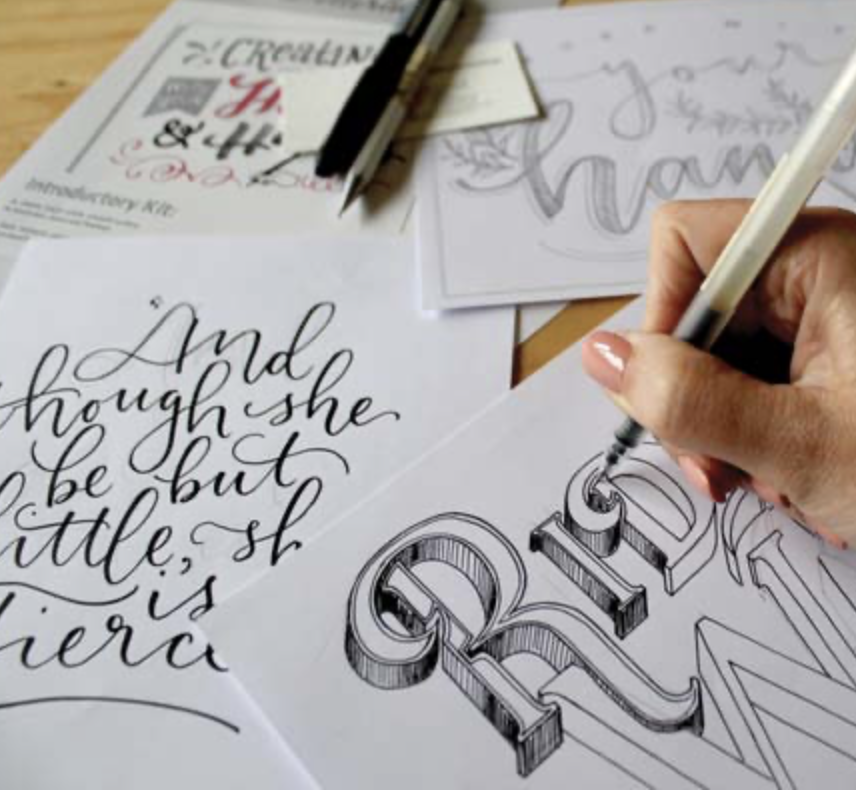 CREATIN
&
Introductory Kit:
your
han
"And
though she
be but
little, sh
is
fierce
RID
W